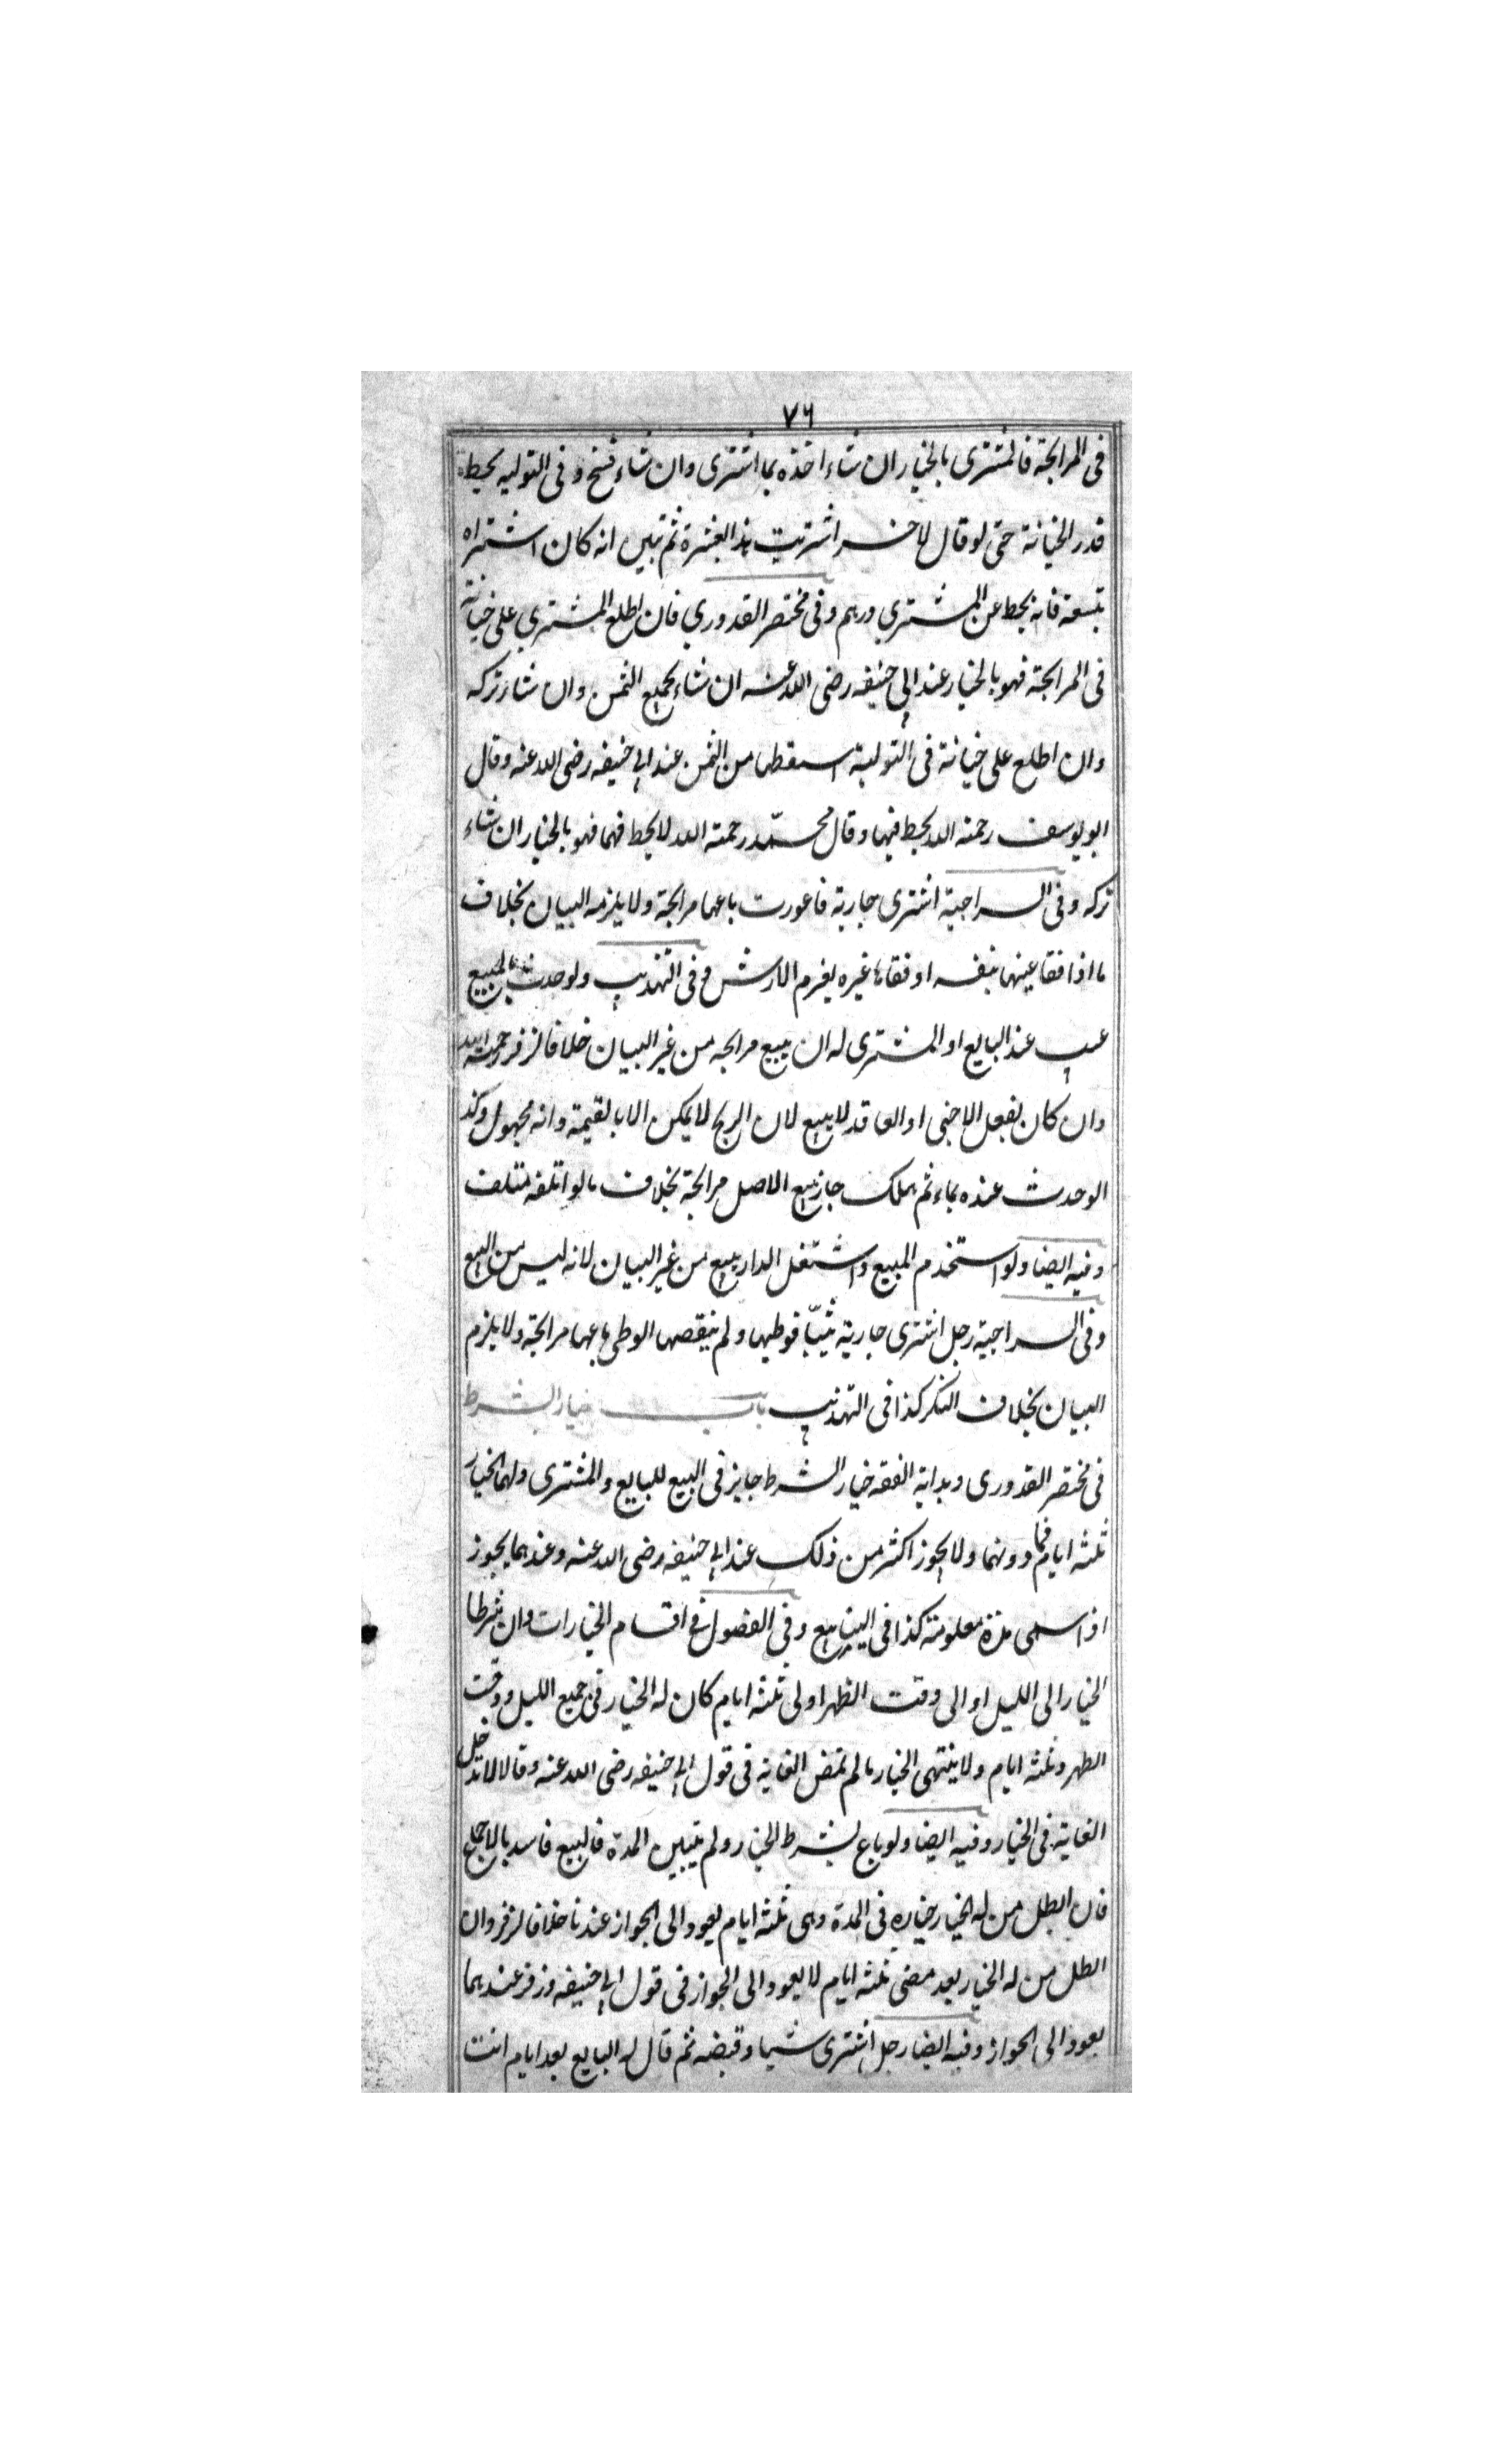 ٧٦
فى المرابحة فالمشترى بالخيار ان شاء اخذه بما اشترى وان شاء فسخ وفى التوليه يحط
قدر الخيانة حتى لو قال لاخر اشتريت هذا بعشرة ثم تبين انه كان اشتراه
بتسعة فانه يحط عن المشتري درهم وفى مختصر القدوري فان اطلع المشتري على خيانة
فى المرابحة فهو بالخيار عند ابي حنيفه رضى الله عنه ان شاء بجميع الثمن وان شاء تركه
وان اطلع على خيانة فى التولية اسقطها من الثمن عند ابي حنيفه رضى الله عنه وقال
ابو يوسف رحمه الله يحط فيها وقال محمّد رحمة الله لا يحط فيهما فهو بالخيار ان شاء
تركه وفى السراجية اشترى جارية فاعورت باعها مرابحة ولا يلزمه البيان بخلاف
ما اذا فقا عينها بنفسه او فقاها غيره يغرم الارش وفى التهذيب ولو حدث بالمبيع
عيب عند البايع او المشترى له ان يبيع مرابحه من غير البيان خلافا لزفر رحمة الله
وان كان بفعل الاجنبى او العاقد لا يبيع لان الربح لا يمكن الا بالقيمة وانه مجهول وكذ
الوحدث عنده نماء ثم هلك جاز بيع الاصل مرابحة بخلاف مالو اتلفه متلف
وفيه ايضا ولو استخدم المبيع واشتغل الدار يبيع من غير البيان لانه ليس من البيع
وفى السراجية رجل اشترى جارية ثيّبا فوطيها ولم ينقصها الوطى باعها مرابحة ولا يلزم
البيان بخلاف البكر كذا فى التهذيب باب خيار الشرط
فى مختصر القدورى وبداية الفقه خيار الشرط جايز فى البيع للبايع والمشترى ولهما الخيار
ثلثه ايام فما دونهما ولا يجوز اكثر من ذلك عند ابي حنيفه رضى الله عنه وعندهما يجوز
اذا سمى مدة معلومة كذا فى الينابيع وفى الفصول فى اقسام الخيارات وان شرطا
الخيار الى الليل او الى وقت الظهر اولى ثلثه ايام كان له الخيار فى جميع الليل ووقت
الظهر وثلثه ايام ولا ينتهى الخيار مالم تمض الغاية فى قول ابي حنيفه رضى الله عنه وقالا لا تدخل
الغاية فى الخيار وفيه ايضا ولو باع بشرط الخيار ولم يتبين المدة فالبيع فاسد بالاجماع
فان ابطل من له الخيار خياره فى المدة وهى ثلثه ايام يعود الى الجواز عندنا خلافا لزفر وان
ابطل من له الخيار بعد مضى ثلثه ايام لا يعود الى الجواز فى قول ابي حنيفه وزفر عندهما
يعود الى الجواز وفيه ايضا رجل اشترى شيا وقبضه ثم قال له البايع بعد ايام انت